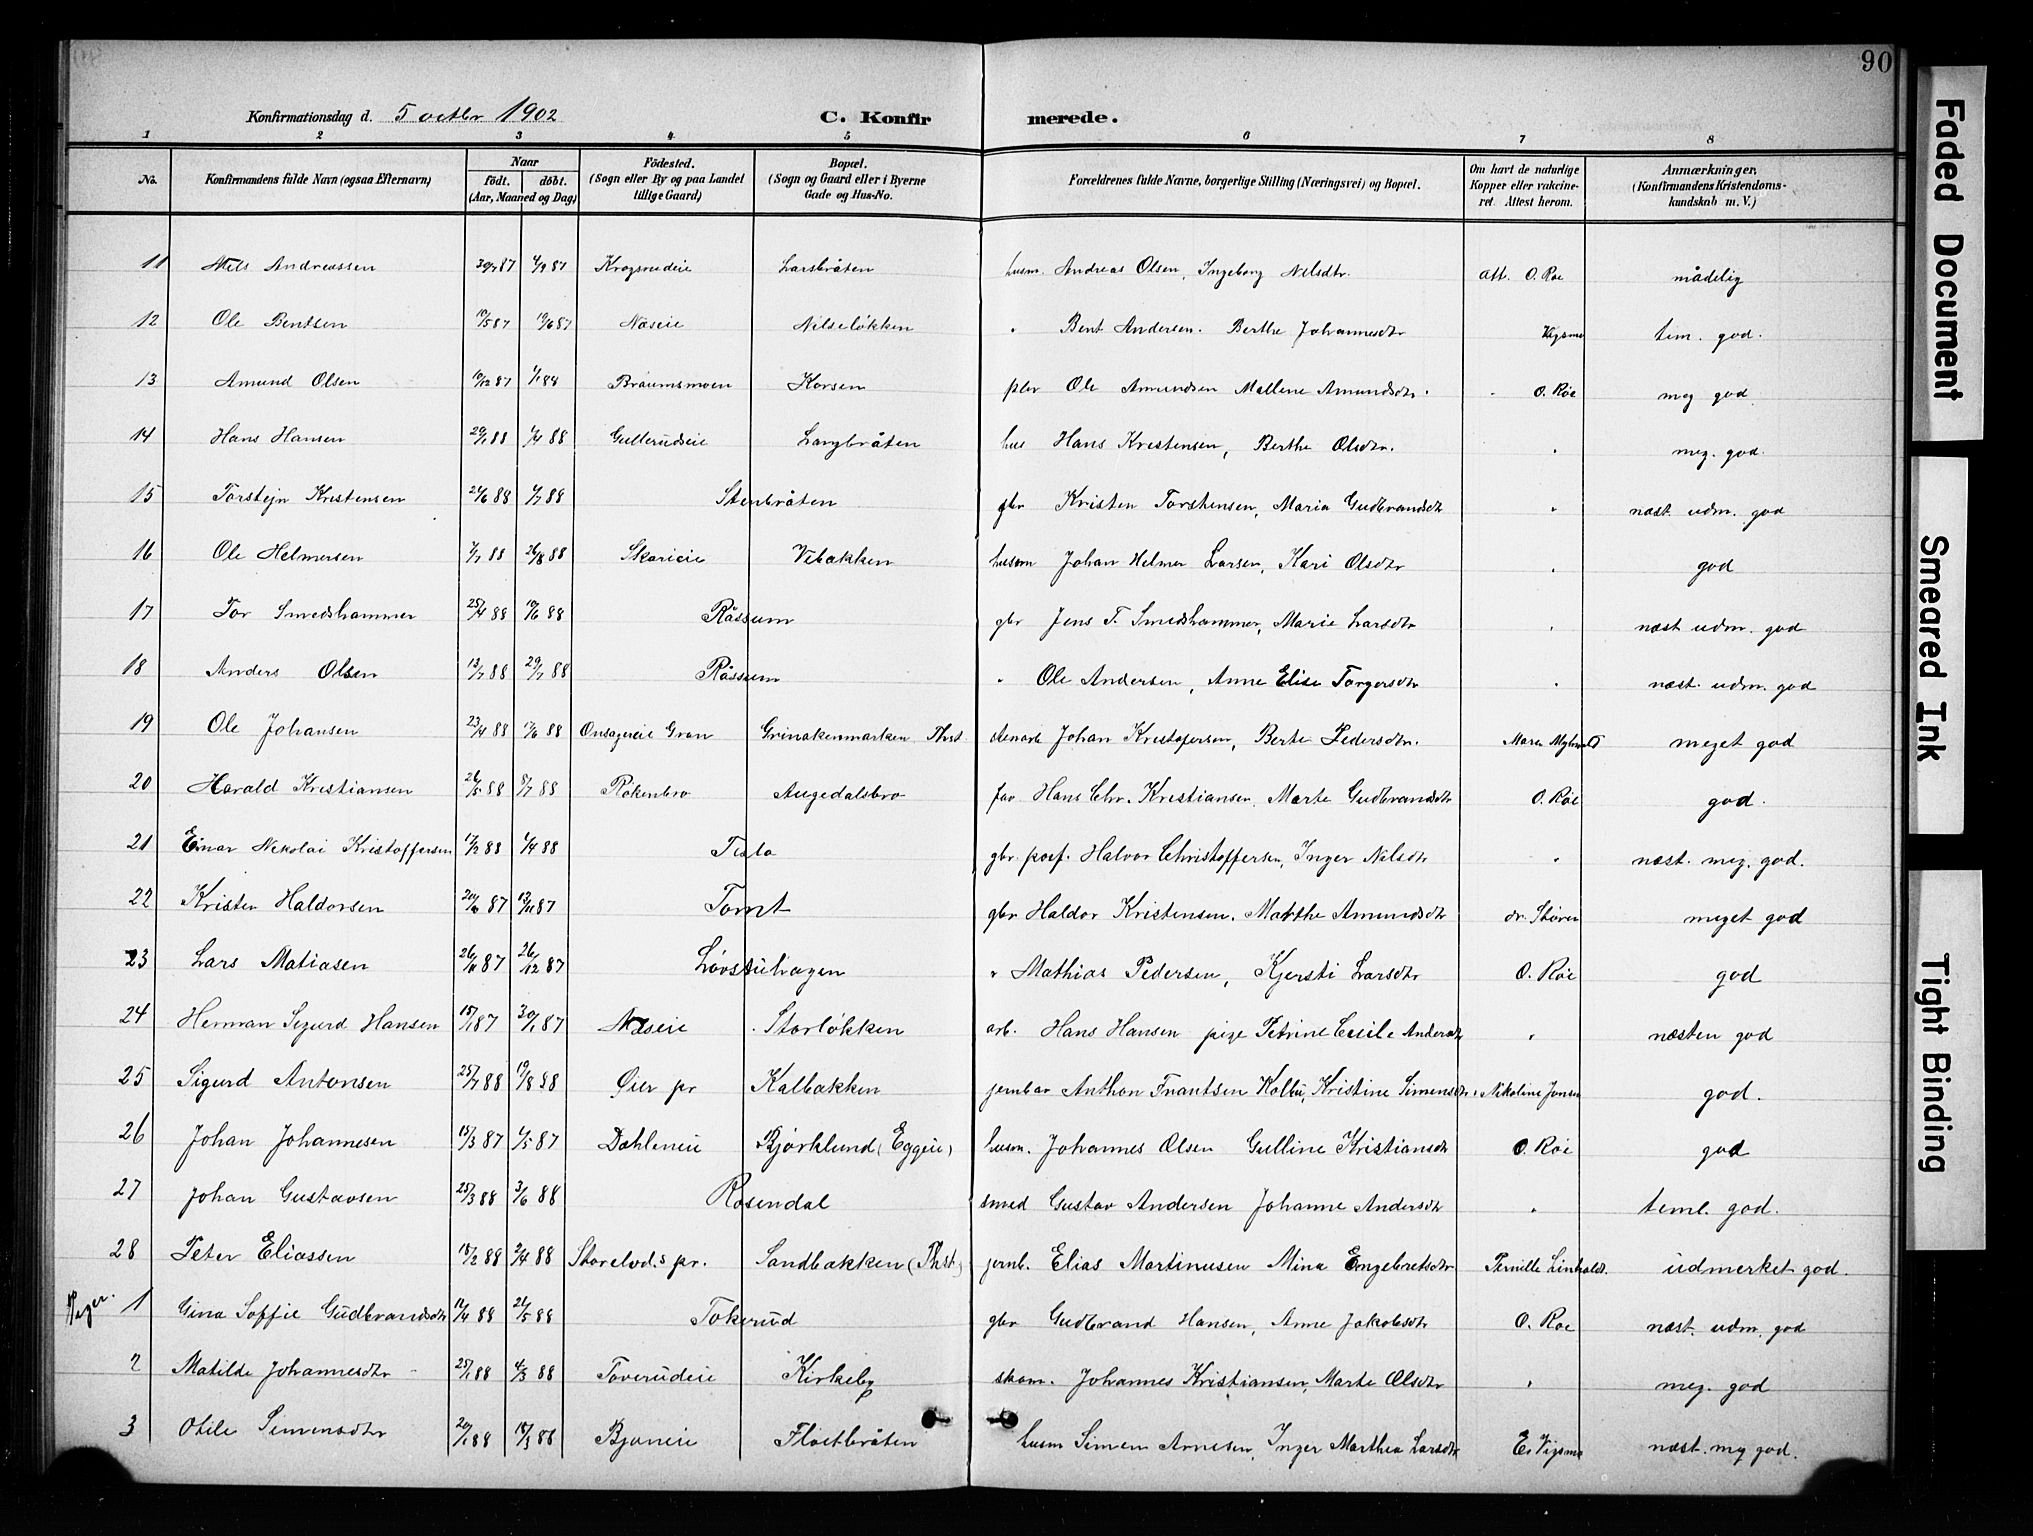 90
Konfirmationsdag d. 5 octbr 1902 C. Konfirmerede.
1 2 3 4 5 6 7 8
No. Konfirmandens fulde Navn (ogsaa Efternavn) Naar født. døbt. (Aar, Maaned og Dag) Fødested. (Sogn eller By og paa Landet tillige Gaard) Bopæl. (Sogn og Gaard eller i Byerne Gade og Hus-No. Forældrenes fulde Navne, borgerlige Stilling (Næringsvei) og Bopæl. Om havt de naturlige Kopper eller vakcineret. Attest herom. Anmærkninger. (Konfirmandens Kristendomskundskab m. V.)
11 Nils Andreassen 87 87 Krogsrudeie Larsbråten husm. Andreas Olsen, Ingeborg Nilsdtr. att. O. Røe mådelig
12 Ole Bentsen 19/5 87 19/6 87 Næseie Nilseløkken " Bent Andersen. Berthe Johannesdtr tem. god.
13 Amund Olsen 19/12 87 Braumsmoen Korsen pbr Ole Amundsen Mallene Amundsdtr. " O. Røe meg god
14 Hans Hansen 29/1 88 1/4 88 Gullerudseie Langbråten hus Hans Kristensen, Berthe Olsdtr. " meg. god.
15 Torstejn Kristensen 88 88 Stenbråten gbr Kristen Torstensen, Maria Gudbrandsdtr " næst. udm. god
16 Ole Helmersen 88 26/8 88 Skarieie Vebakken husm Johan Helmer Larsen, Kari Olsdtr " god
17 Tor Smedshammer 25/4 88 10/6 88 Råssum gbr Jens T. Smedshammer, Marie Larsdtr " næst udm. god
18 Anders Olsen 13/7 88 29/7 88 Råssum " Ole Andersen, Anne Elise Torgersdtr " næst. udm. god
19 Ole Johansen 23/4 88 88 Onsageeie Gran Grinakenmarken Thst. stenarb Johan Kristofersen, Berte Pedersdtr. meget god
20 Harald Kristiansen 26/5 88 8/7 88 Røkenbro Augedalsbro fav Hans Chr. Kristiansen, Marte Gudbrandsdtr O. Røe god.
21 Einar Nikolai Kristoffersen 17/2 88 1/4 88 Tisla gbr. poef. Halvor Christoffersen, Inger Nilsdtr " næst. meg. god.
22 Kristen Haldorsen 87 87 Tomt gbr Haldor Kristensen. Marthe Amundsdtr dr. Støren meget god
23 Lars Matiasen 26/11 87 26/12 87 Løvstuhagen " Mathias Pedersen, Kjersti Larsdtr O. Røe god
24 Herman Sigurd Hansen 15/1 87 30/1 87 Næseie Storløkken arb. Hans Hansen pige Petrine Cecilie Andersdtr " næsten god
25 Sigurd Antonsen 25/7 88 19/8 88 Øier pr Kalbakken jernbar Anthon Frantsen Kolbu, Kristine Simensdtr. Nikoline Jonsen god.
26 Johan Johannesen 15/3 87 1/5 87 Dæhleneie Bjørklund (Eggeie) husm. Johannes Olsen Gulline Kristiansdtr O. Røe god
27 Johan Gustavsen 25/3 88 3/6 88 Rosendal smed Gustav Andersen Johanne Andersdtr " teml. god.
28 Peter Eliassen 18/2 88 2/4 88 Storelvd.s pr. Sandbakken (Thst.) jernb. Elias Martinusen Mina Engebretsdtr Pernille Lindholdt. udmerket god.
Piger. 1 Gina Soffie Gudbrandsdtr 12/4 88 21/5 88 Tokerud gbr Gudbrand Hansen, Anne Jakobsdtr O. Røe næst. udm. god
2 Matilde Johannesdtr 25/1 88 4/3 88 Toverudeie Kirkeby skom. Johannes Kristiansen, Marte Olsdtr " meg. god
3 Otile Simensdtr 20/1 88 18/3 88 Bjoneie Fløitbråten husm Simen Arnesen, Inger Marthea Larsdtr E. Vigsmo næst. meg god.
Faded Document
Smeared Ink
Tight Binding